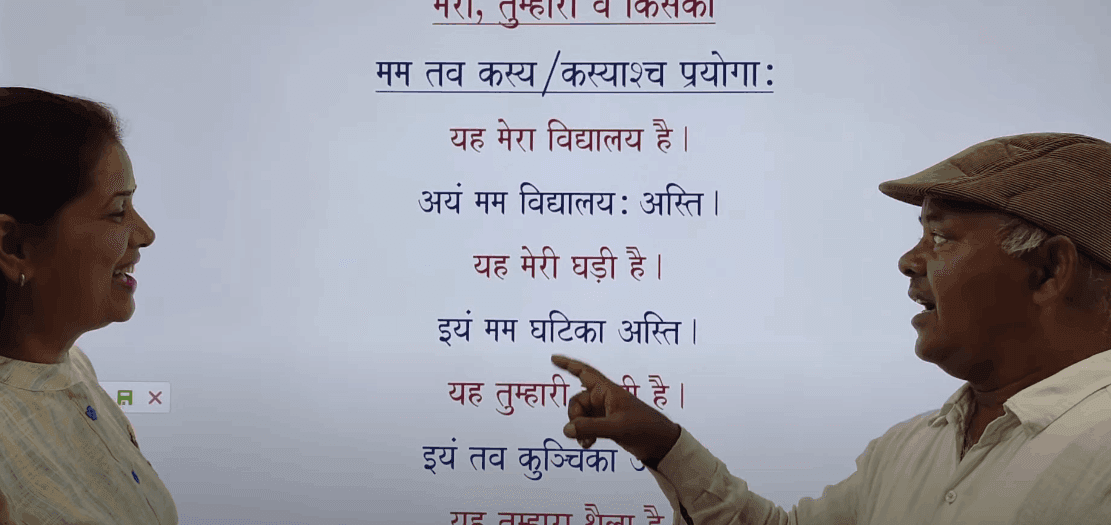 मेरा, तुम्हारा व किसका
मम तव कस्य/कस्याश्च प्रयोगः
यह मेरा विद्यालय है।
अयं मम विद्यालयः अस्ति।
यह मेरी घड़ी है।
इयं मम घटिका अस्ति।
यह तुम्हारी है।
इयं तव कुञ्चिका
यह तुम्हारा थैला है